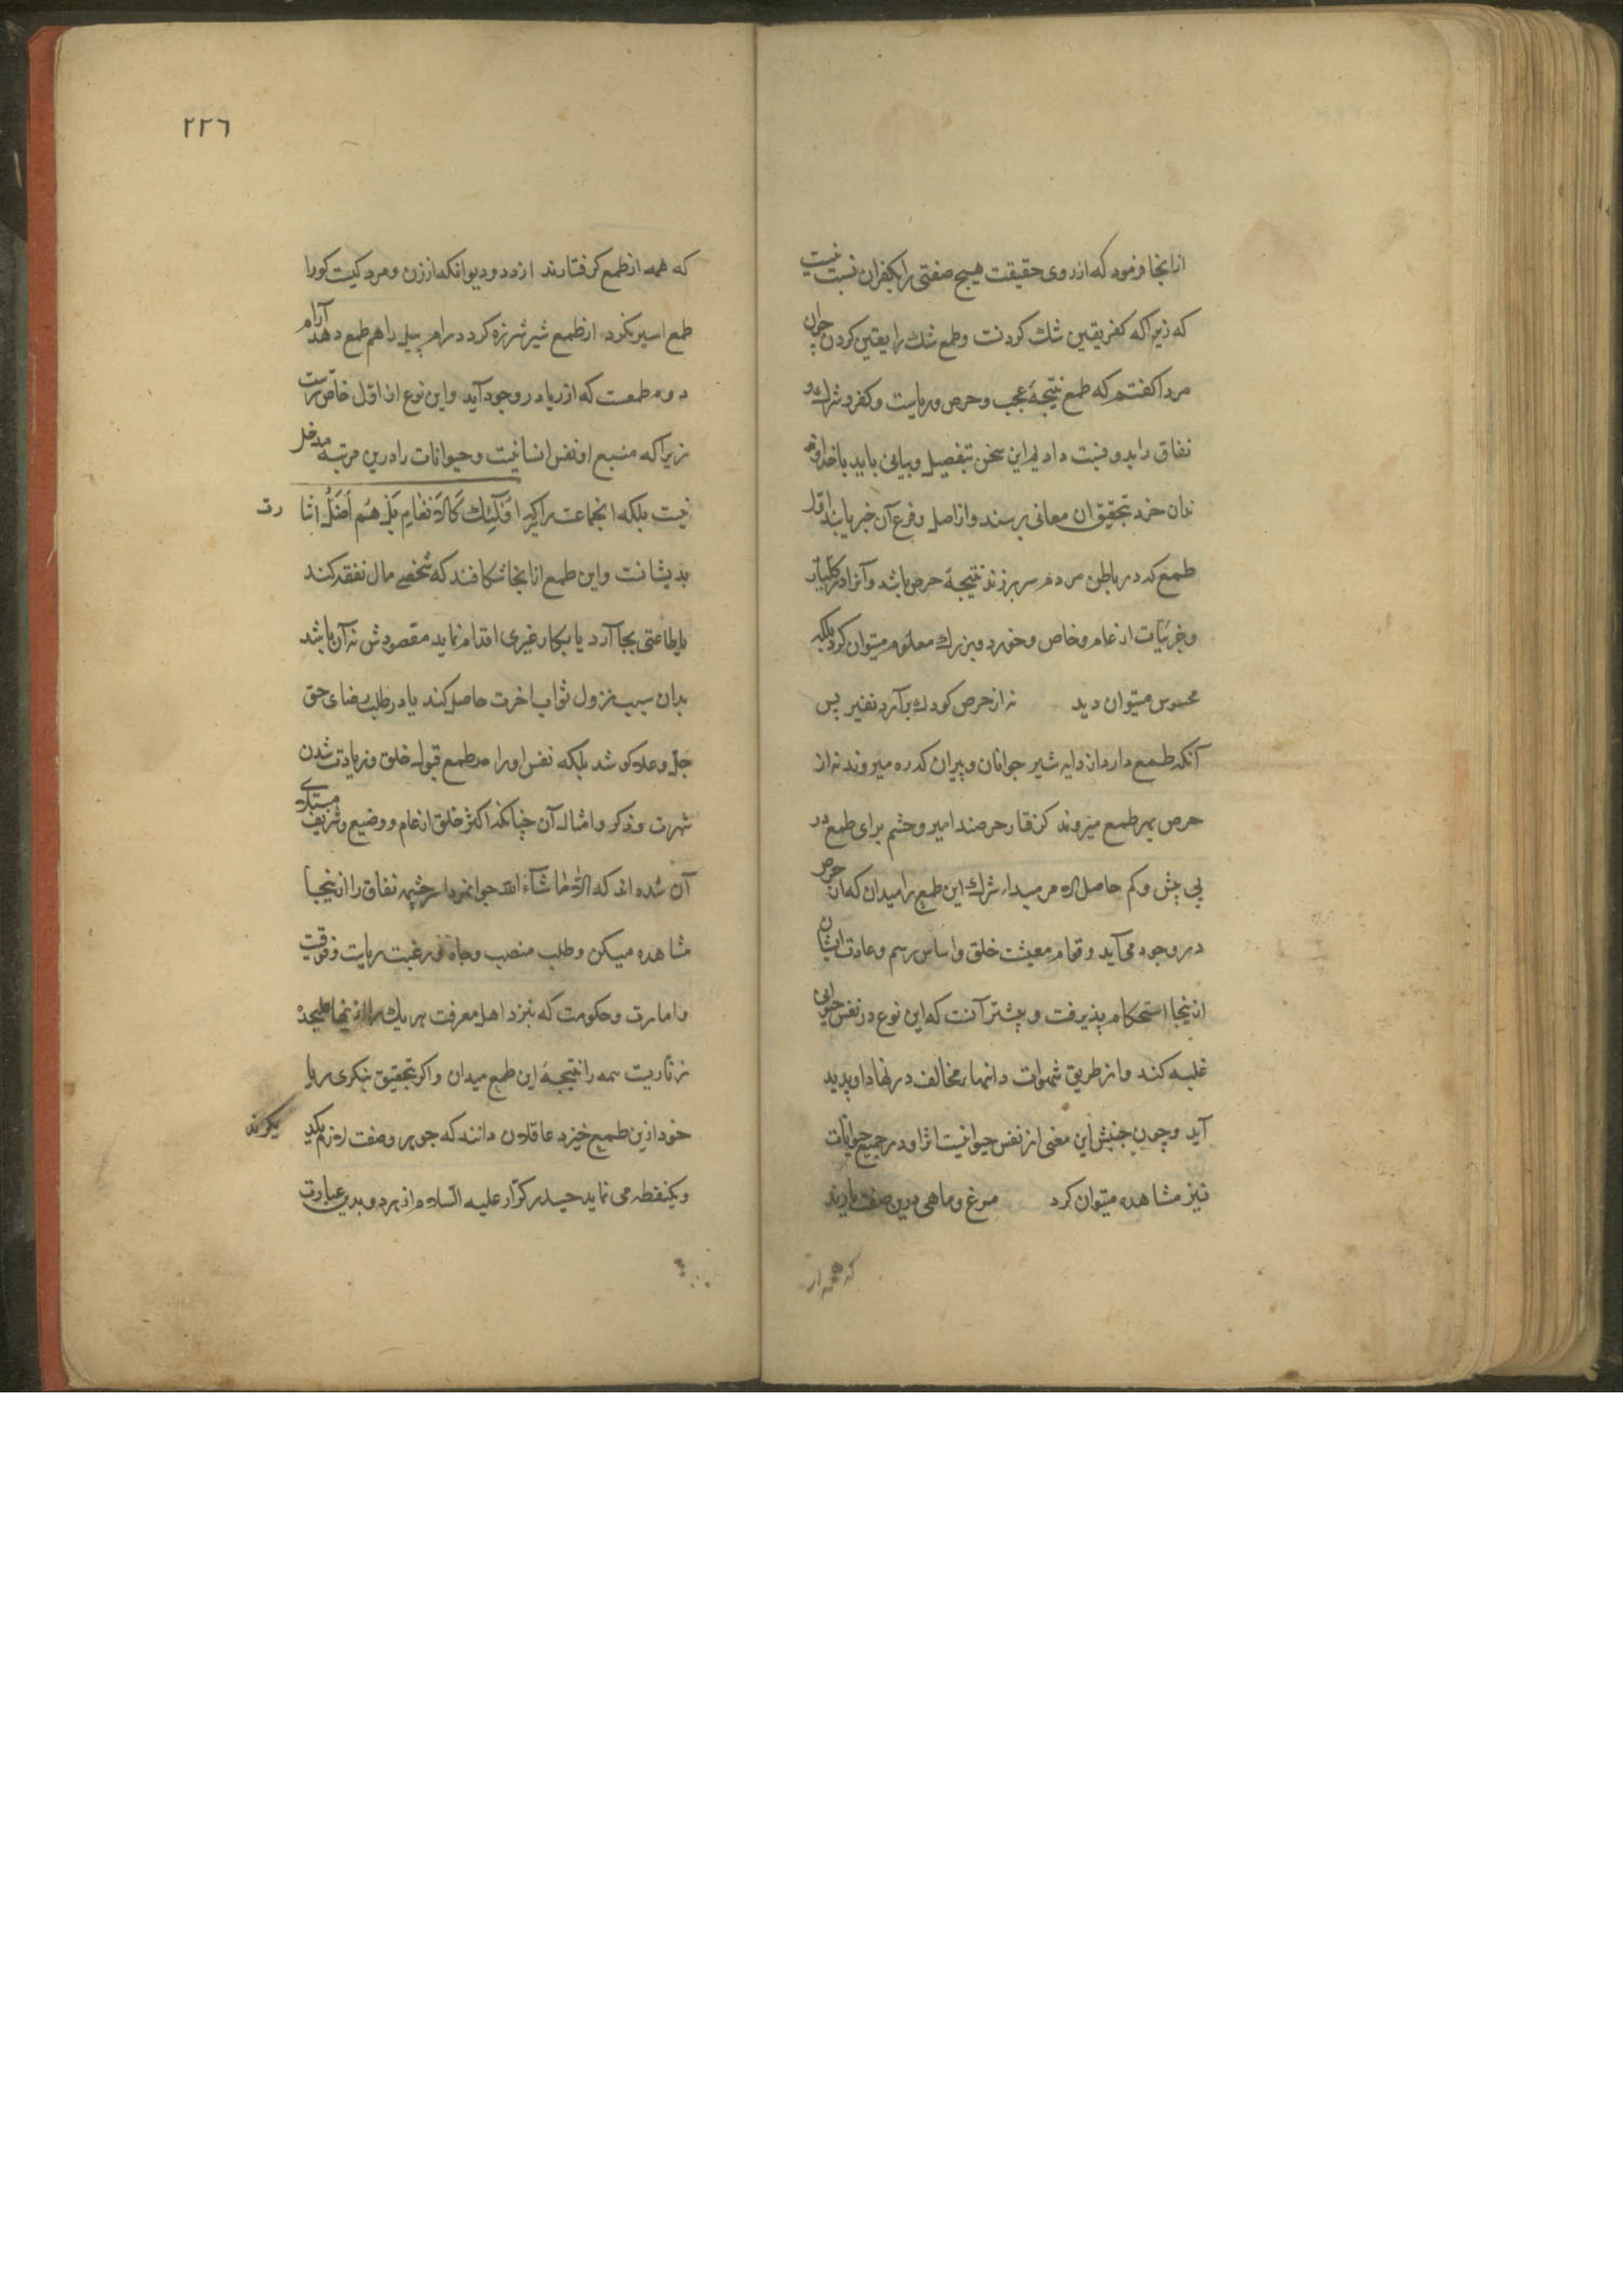 ازانجا فرمود که از روی حقیقت هیچ صفتی را بکفران نسبت نیست
که زیرا که کفر یقین شك کردنت و طمع شك را یقین کردن جوان
مردا کفتم که طمع نتیجۀ عجب و حرص و ریاست و کفر و شرك و
نفاق را بدو نسبت دادیم این سخن بتفصیل و بیانی باید باخداوند
ندان خرد بتحقیق ان معانی برسند و از اصل و فرع آن خبر یابند اول
طمع که در باطن مردم سر برزند نتیجۀ حرص باشد و آنرا در کلیات
و جزئیات از عام و خاص و خورد و بزرك معلوم میتوان کرد بلکه
محسوس میتوان دید نه از حرص کودك برآرد نفیر پس
آنکه طمع دارد از دایه شیر جوانان و پیران که ره میروند نه از
حرص بهر طمع میروند کرفتار حرصند امیر و حشم برای طمع در
پی بیش و کم حاصل الامر مبداء شرك این طمع را میدان که از حرص
در وجود می آید و قوام معیشت خلق و اساس رسم و عادت ایشان
ازینجا استحکام پذیرفت و بیشتر آنست که این نوع در نفس حیوانی
غلبه کند و از طریق شهوات مخالف در نهاد او پدید
آید و چون جنبش این معنی از نفس حیوانیت اثر او در جمیع حیوانات
نیز مشاهده میتوان کرد مرغ و ماهی درین صفت یارند
که همه از
٢٢٦
که همه از طمع کرفتارند از دد و دیو انکه از زن و مرد کیست کورا
طمع اسیر نکرد از طمع شیر شرزه کردد رام پیل را هم طمع دهد آرام
دوم طمعست که از ریا در وجود آید و این نوع از اول خاص ترست
زیرا که منبع او نفس انسانیت و حیوانات را درین مرتبه مدخل
نیست بلکه انجماعت را که اُولَٓئِكَ كَالاَنْعَامِ بَلْ هُمْ اَضَلُّ اشا رت
بدیشانت و این طمع از انجا شکافند که شخصی مال نفقه کند
یا طاعتی بجا آرد یا بکار خیری اقدام نماید مقصودش نه آن باشد
بدان سبب نزول ثواب اخرت حاصل کند یا در طلب رضای حق
جلّ و علا کوشد بلکه نفس او را در طمع قبول خلق و زیادت شدن
شهرت و ذکر و امثال آن چنانکه اکثر خلق از عام و وضیع و شریف مبتلای
آن شده اند که الّا ما شاء الله جوانمردا سرچشمه نفاق را ازینجا
مشاهده میکن و طلب منصب و جاه و رغبت ریاست و فوقیت
و امارت و حکومت که بنزد اهل معرفت هر یك را ازینها
همه را نتیجۀ این طمع میدان و اکر بتحقیق بنکری ریا
خود ازین طمع خیزد عاقلان دانند که جوهر و صفت لازم یکدیکرند
و یکنقطه می نماید حیدر کرّار علیه السّلام از هر دو بدین عبارت